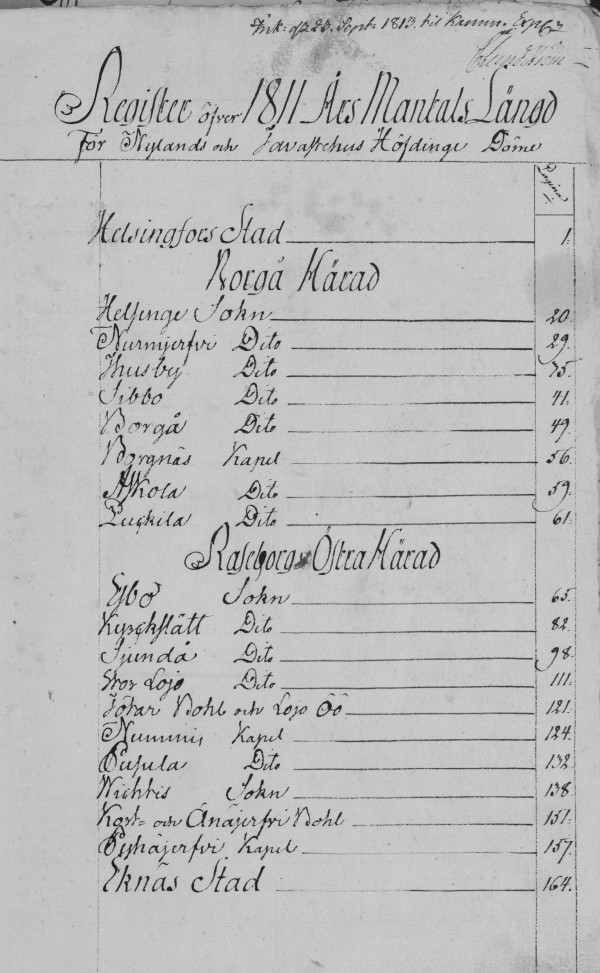 Ink: d. 23. Sept: 1813. til Kamm: Exp:
Register öfver 1811 Års Mantals Längd
För Nylands och Tavastehus Höfdinge Döme
Pagina
Helsingfors Stad 1.
Borgå Härad
Helsinge Sokn 20.
Nurmijerfvi Dito 29.
Thusby Dito 35.
Sibbo Dito 41.
Borgå Dito 49.
Borgnäs Kapel 56.
Askola Dito 59.
Puckila Dito 61.
Raseborgs Östra Härad
Esbo Sokn 65.
Kyrckslätt Dito 82.
Sjundå Dito 98.
Stor Lojo Dito 111.
Jötar Bohl och Lojo Öö 121.
Nummis Kapel 124.
Pusula Dito 132.
Wichtis Sokn 138.
och Änäjerfvi Bohl 151.
Pyhäjerfvi Kapel 157.
Eknäs Stad 164.